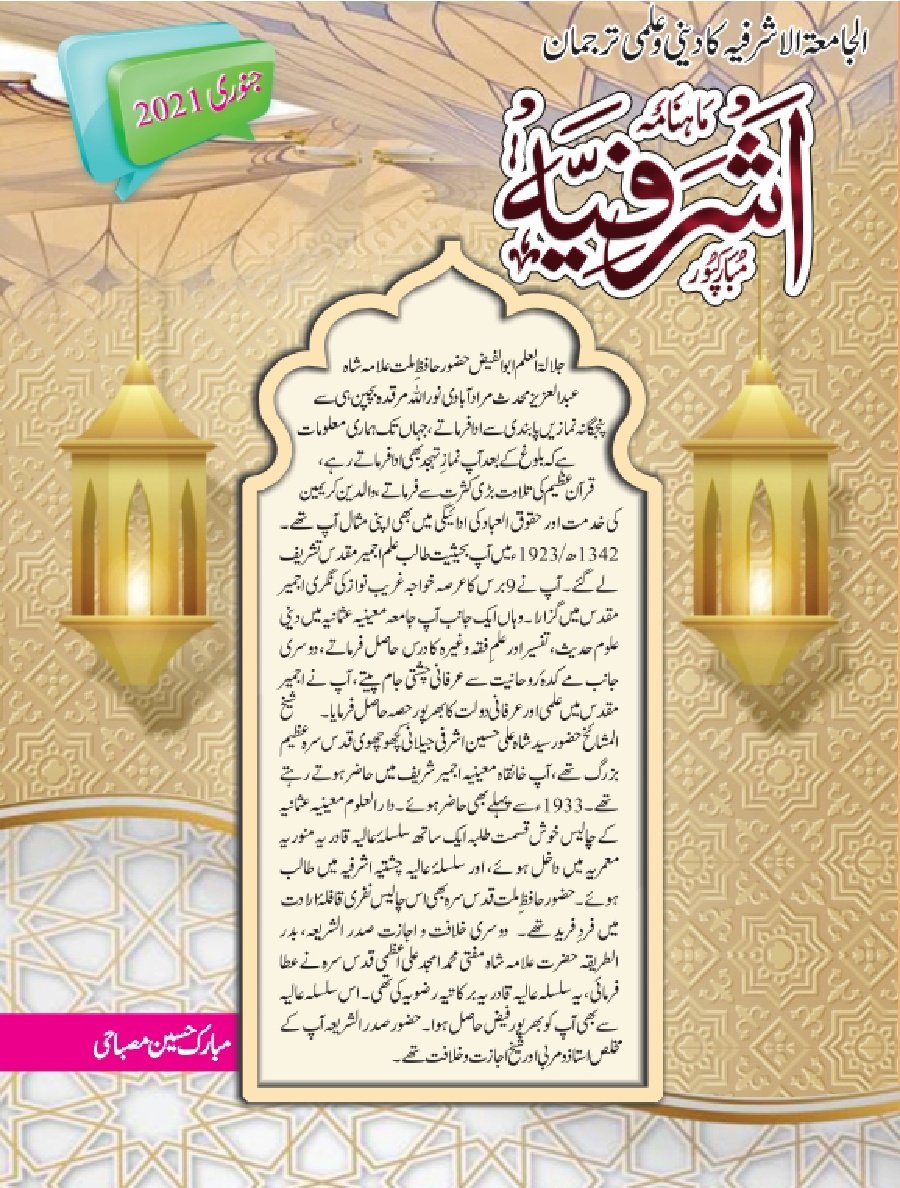 الجامعۃ الاشرفیہ کا دینی و علمی ترجمان
جنوری 2021
ماہنامہ
اشرفیہ
مبارکپور
جلالۃ العلم ابوالفیض حضور حافظِ ملت علامہ شاہ
عبدالعزیز محدث مرادآبادی نور اللہ مرقدہ بچپن ہی سے
پنجگانہ نمازیں پابندی سے ادا فرماتے، جہاں تک ہماری معلومات
ہے کہ بلوغ کے بعد آپ نمازِ تہجد بھی ادا فرماتے رہے،
قرآن عظیم کی تلاوت بڑی کثرت سے فرماتے، والدین کریمین
کی خدمت اور حقوق العباد کی ادائیگی میں بھی اپنی مثال آپ تھے۔
1342ھ/1923ء میں آپ بحیثیت طالب علم اجمیر مقدس تشریف
لے گئے۔ آپ نے 9 برس کا عرصہ خواجہ غریب نواز کی نگری اجمیر
مقدس میں گزارا۔ وہاں ایک جانب آپ جامعہ معینیہ عثمانیہ میں دینی
علوم حدیث، تفسیر اور علمِ فقہ وغیرہ کا درس حاصل فرماتے، دوسری
جانب مے کدۂ روحانیت سے عرفانی چشتی جام پیتے، آپ نے اجمیر
مقدس میں علمی اور عرفانی دولت کا بھرپور حصہ حاصل فرمایا۔ شیخ
المشائخ حضور سید شاہ علی حسین اشرفی جیلانی کچھوچھوی قدس سرہ عظیم
بزرگ تھے، آپ خانقاہ معینیہ اجمیر شریف میں حاضر ہوتے رہتے
تھے۔ 1933ء سے پہلے بھی حاضر ہوئے۔ دارالعلوم معینیہ عثمانیہ
کے چالیس خوش قسمت طلبہ ایک ساتھ سلسلۂ عالیہ قادریہ منوریہ
معمریہ میں داخل ہوئے، اور سلسلۂ عالیہ چشتیہ اشرفیہ میں طالب
ہوئے۔ حضور حافظِ ملت قدس سرہ بھی اس چالیس نفری قافلۂ ارادت
میں فردِ فرید تھے۔ دوسری خلافت و اجازت صدر الشریعہ، بدر
الطریقہ حضرت علامہ شاہ مفتی محمد امجد علی اعظمی قدس سرہ نے عطا
فرمائی، یہ سلسلہ عالیہ قادریہ برکاتیہ رضویہ کی تھی۔ اس سلسلہ عالیہ
سے بھی آپ کو بھرپور فیض حاصل ہوا۔ حضور صدر الشریعہ آپ کے
مخلص استاذ و مربی اور شیخ اجازت و خلافت تھے۔
مبارک حسین مصباحی